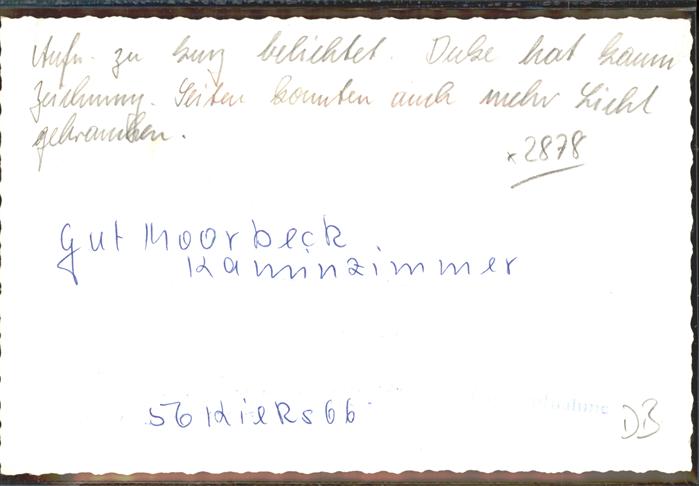 Aufn. zu kurz belichtet. Decke hat kaum
Zeichnung. Seiten konnten auch mehr Licht
gebrauchen.
x2878
Gut Moorbeck
Kaminzimmer
DB